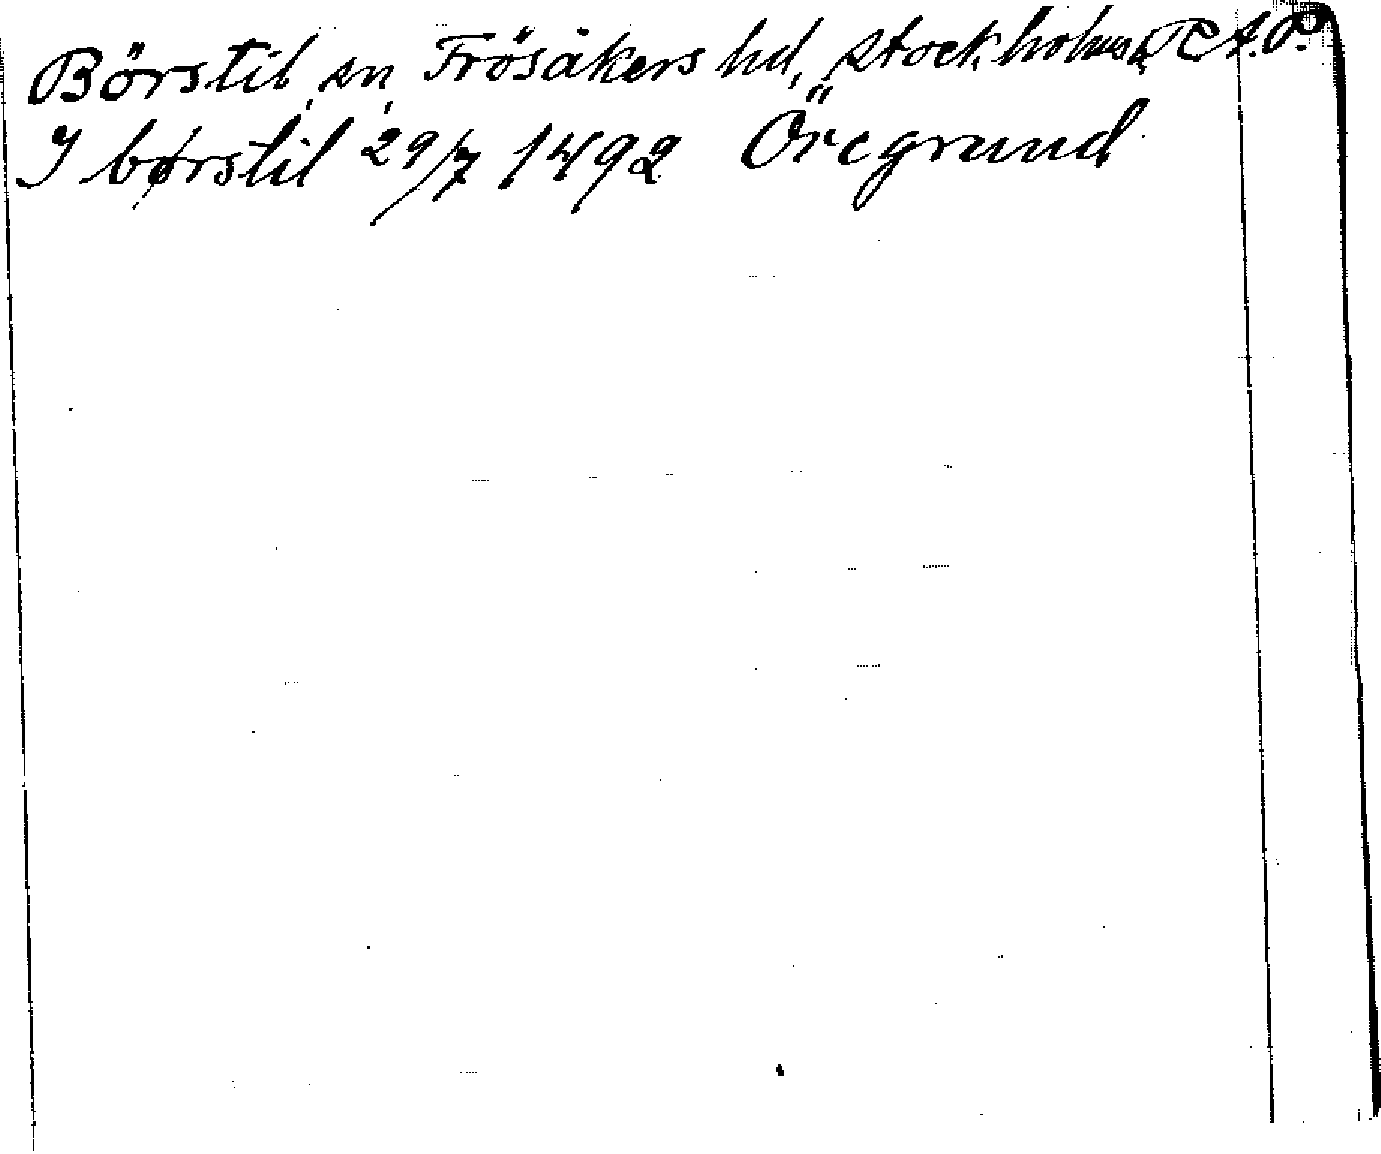 Börstil, sn, Frösåkers hd, Stockholms l, R A. P.
I børstil 29/7 1492 Öregrund